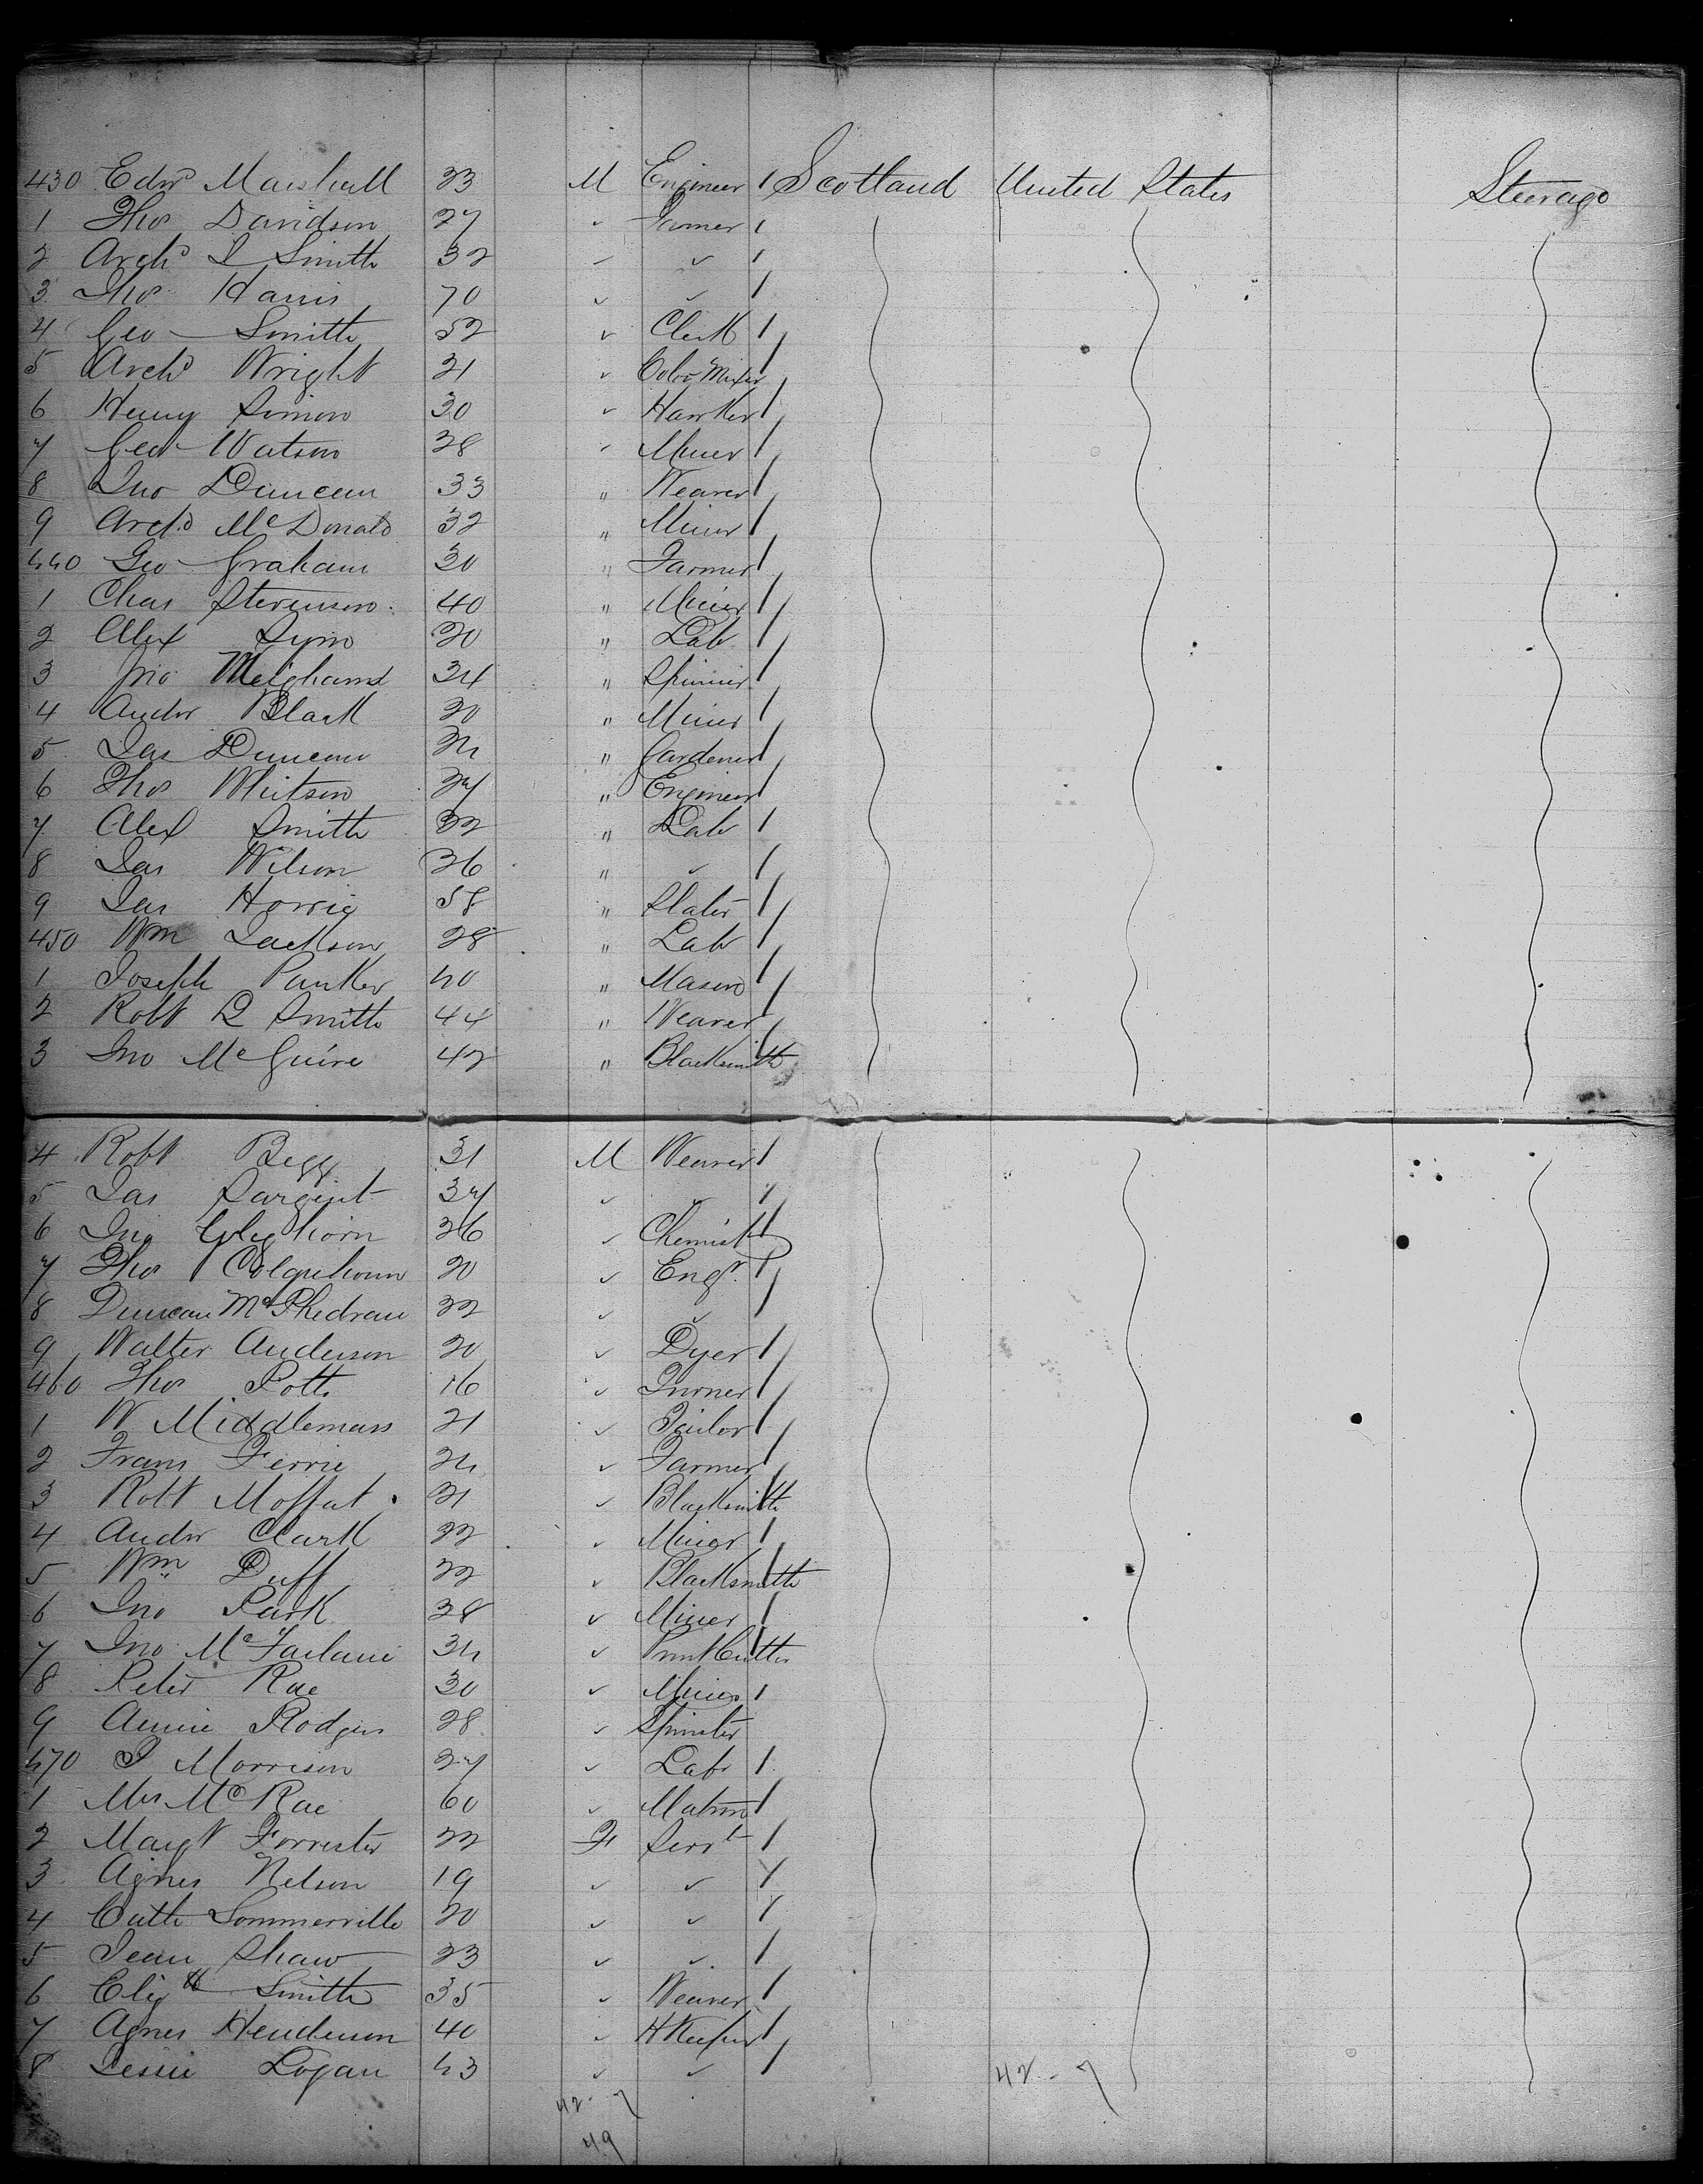 430 Edwd Marshall 33 M Engineer 1 Scotland United States Steerage
1 Thos Davidson 27 " Farmer 1
2 Archd I Smith 32 " " 1
3 Thos Harris 70 " " 1
4 Geo Smith 52 " Clerk 1
5 Archd Wright 21 " Color Mixer 1
6 Henry Simon 30 " Hawker 1
7 Geo Watson 28 " Miner 1
8 Jno Duncan 33 " Weaver 1
9 Archd McDonald 32 " Miner 1
440 Geo Graham 30 " Farmer 1
1 Chas Stevenson 40 " Miner 1
2 Alex Syme 20 " Lab 1
3 Jno 34 " Spinner 1
4 Andw Black 20 " Miner 1
5 Jas Duncan 24 " Gardener 1
6 Thos Whitson 27 " Engineer 1
7 Alex Smith 32 " Lab 1
8 Jas Wilson 26 " " 1
9 Jas Horrig 58 " Slater 1
450 Wm Jackson 28 " Lab 1
1 Joseph Punker 40 " Mason 1
2 Robt D Smith 44 " Weaver 1
3 Jno McGuire 42 " Blacksmith 1
4 Robt Begg 31 M Weaver 1
5 Jas Sargint 37 " " 1
6 Jno Gleghorn 26 " Chemist 1
7 Thos Colquhoun 20 " Engr 1
8 Duncan McPhedran 22 " " 1
9 Walter Anderson 20 " Dyer 1
460 Thos Potts 16 " Turner 1
1 W Middlemass 21 " Tailor 1
2 Frans Ferrie 24 " Farmer 1
3 Robt Moffat 21 " Blacksmith 1
4 Andw Clark 22 " Miner 1
5 Wm Duff 22 " Blacksmith 1
6 Jno Park 28 " Miner 1
7 Jno McFarlane 34 " Print Cutter 1
8 Peter Rae 30 " Miner 1
9 Annie Rodgers 28 " Spinster
470 J Morrison 27 " Labr 1
1 Mrs McRae 60 " Matron 1
2 Margt Forrester 22 F Servt 1
3 Agnes Nelson 19 " " 1
4 Cath Sommerville 20 " " 1
5 Jean Shaw 23 " " 1
6 Elizth Smith 35 " Weaver 1
7 Agnes Henderson 40 " HKeeper 1
8 Jessie Logan 43 " " 1
42 - 7
42 - 7
49